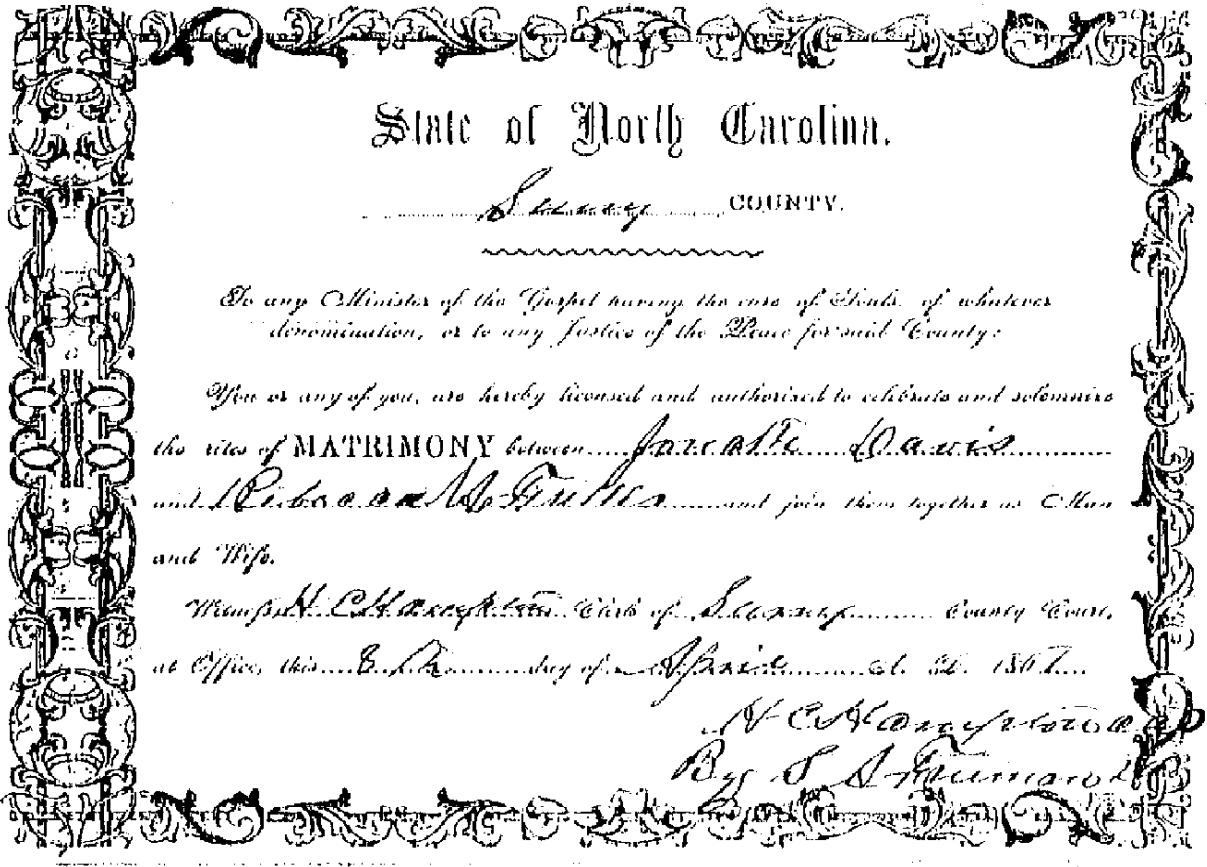 State of North Carolina.
Surry COUNTY.
To any Minister of the Gospel having the care of Souls, of whatever
denomination, or to any Justice of the Peace for said County:
You or any of you, are hereby licensed and authorized to celebrate and solemnize
the rites of MATRIMONY between Davis
and and join them together as Man
and Wife.
Witness H C Hampton Clerk of Surry County Court,
at Office, this 8th day of April A. D. 1867
H C Hampton
By S